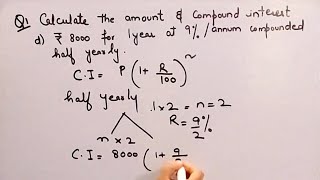 Q: Calculate the amount & compound interest
d) ₹ 8000 for 1 year at 9% / annum compounded
half yearly.
C.I = P (1 + R/100)^n
half yearly 1 x 2 = n = 2
R = 9/2 %
n x 2
C.I = 8000 (1 + 9/